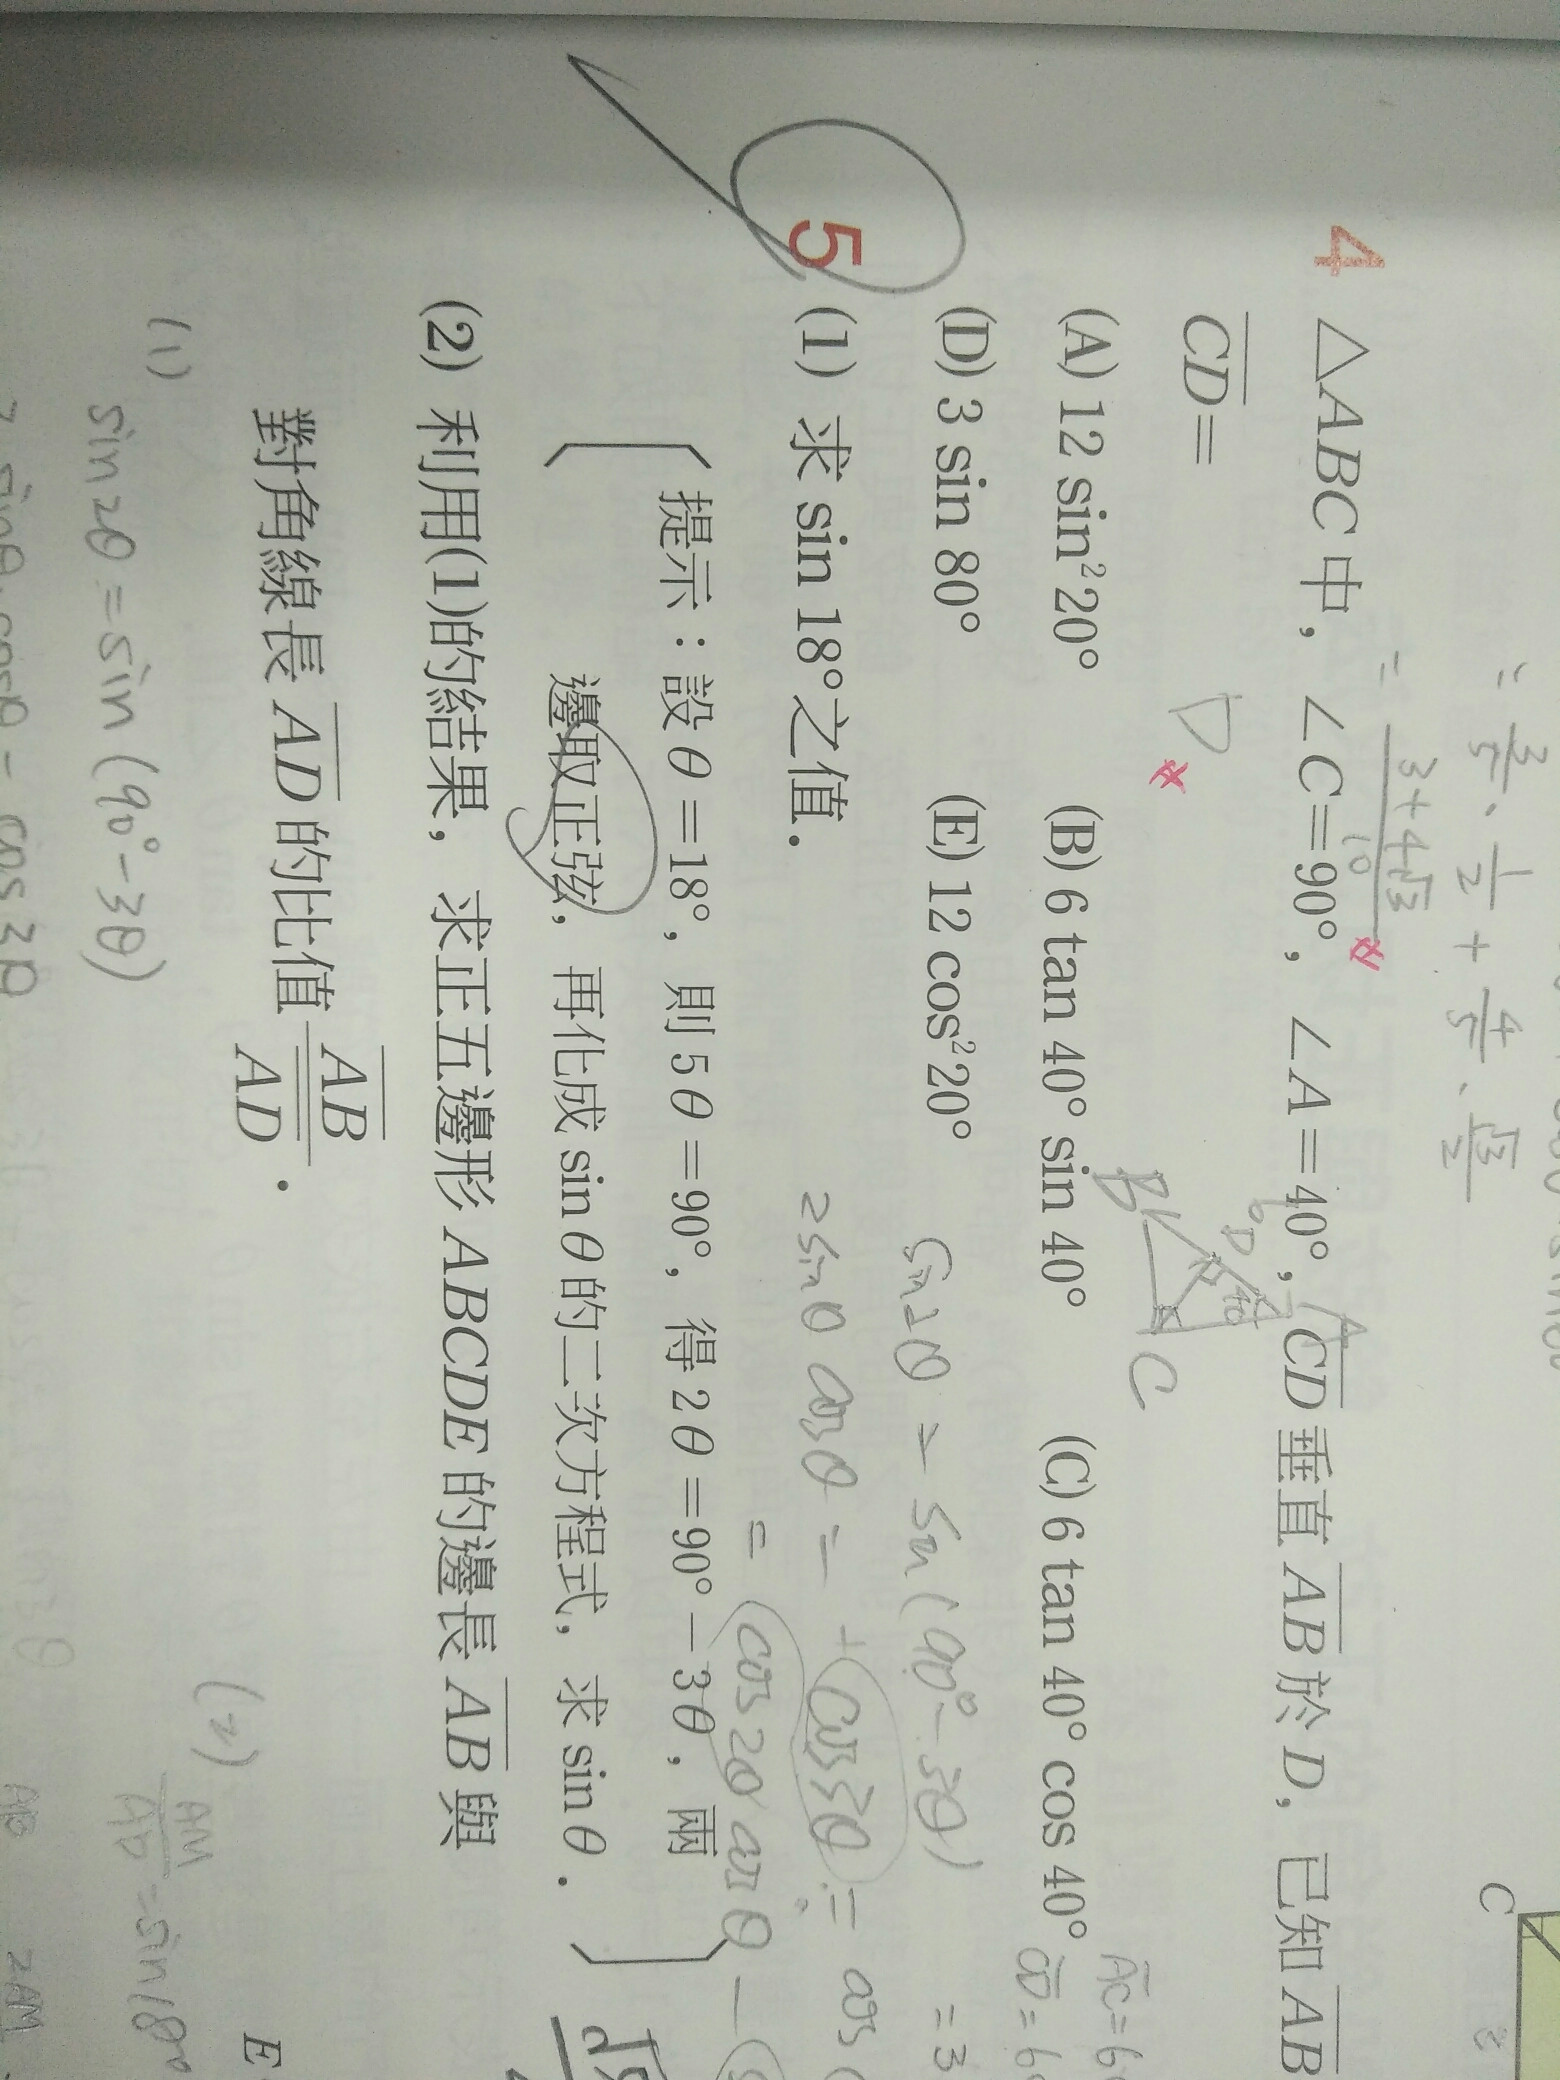 = 3/5 · 1/2 + 4/5 · √3/2
= (3+4√3)/10
4 △ABC中，∠C=90°，∠A=40°，CD垂直AB於D，已知AB
CD=
(A) 12 sin²20° (B) 6 tan 40° sin 40° (C) 6 tan 40° cos 40°
(D) 3 sin 80° (E) 12 cos²20°
D
B
D
40
C
C
AC=6
CD=6
=3
5 (1) 求 sin 18°之值．
提示：設θ=18°，則5θ=90°，得2θ=90°−3θ，兩
邊取正弦，再化成sinθ的二次方程式，求sinθ．
sin2θ = sin(90°−3θ)
2sinθ cosθ = cos3θ = cos
= cos2θ cosθ −
(2) 利用(1)的結果，求正五邊形ABCDE的邊長AB與
對角線長AD的比值 AB/AD ．
(1)
sin2θ = sin(90°−3θ)
2 sinθ·cosθ = cos3θ
(2)
AM/AD = sin18°
AB
2AM
E